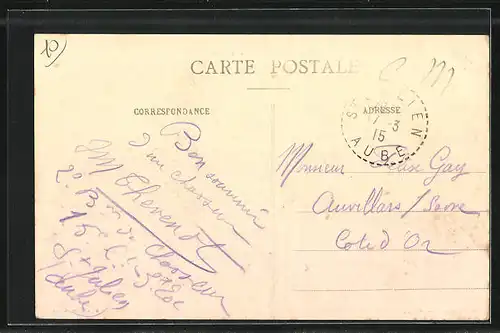 10
CARTE POSTALE
C M
CORRESPONDANCE
ADRESSE
S IEN
3
15
AUBE
Bon souvenir
d'un chasseur
Thevenot
2e B de Chasseur
15e Cie
St Julien
(Aube)
Monsieur Gay
Auvillars / Saone
Cote d'Or